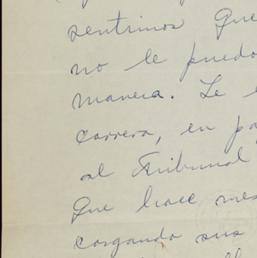 sentrinos que
no le puedo
manera. Le e
carrera, en pa
al Tribunal
que hace mes
cargando sus